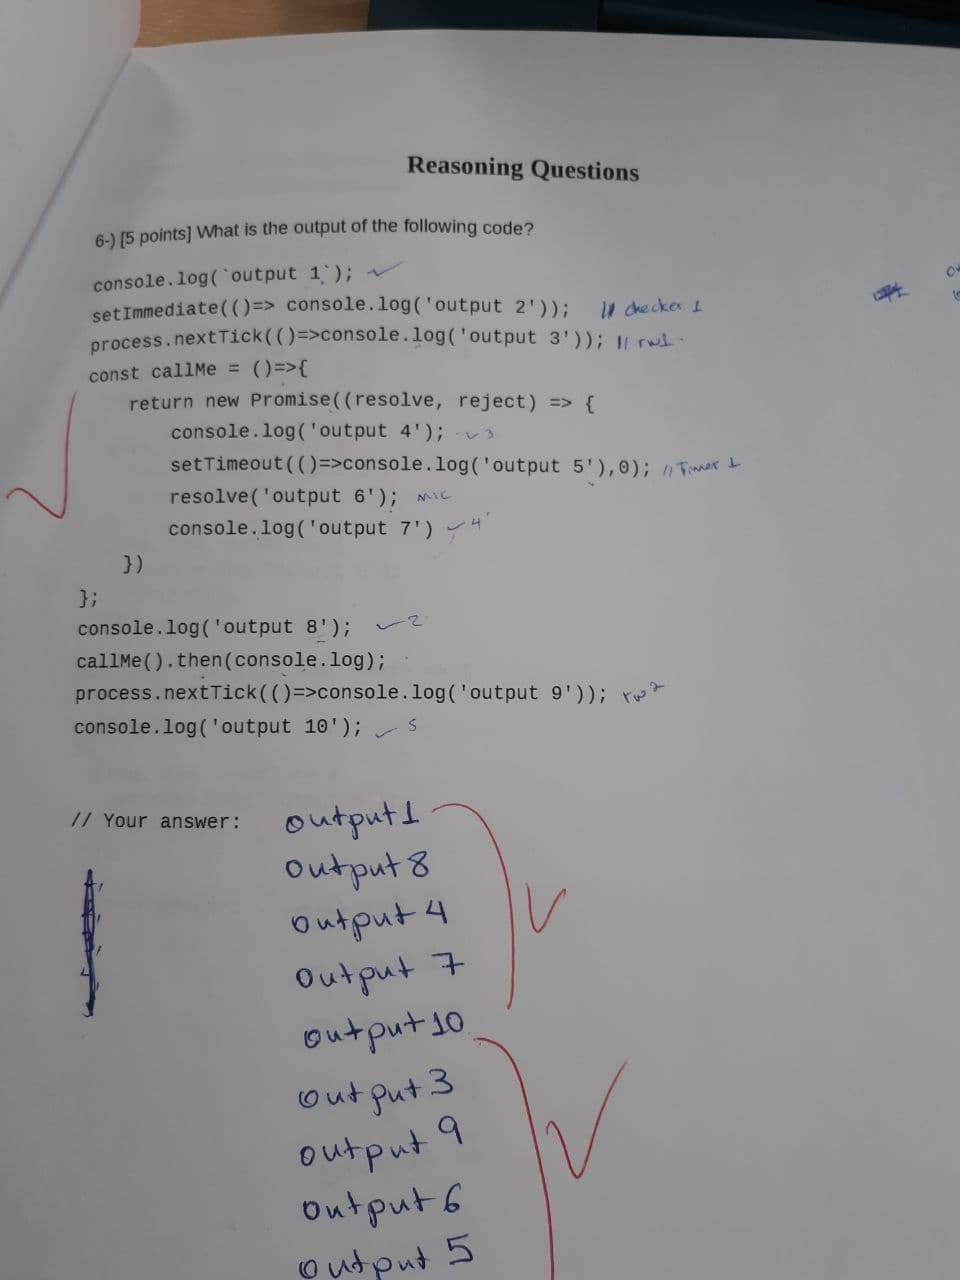 Reasoning Questions
6-) [5 points] What is the output of the following code?
console.log(`output 1`);
setImmediate(()=> console.log('output 2')); // checker 1
process.nextTick(()=>console.log('output 3')); //
const callMe = ()=>{
return new Promise((resolve, reject) => {
console.log('output 4'); 3
setTimeout(()=>console.log('output 5'),0); // Timer 1
resolve('output 6'); MIC
console.log('output 7') 4
})
};
console.log('output 8'); 2
callMe().then(console.log);
process.nextTick(()=>console.log('output 9'));
console.log('output 10'); 5
// Your answer: output 1
output 8
output 4
output 7
output 10
output 3
output 9
output 6
output 5